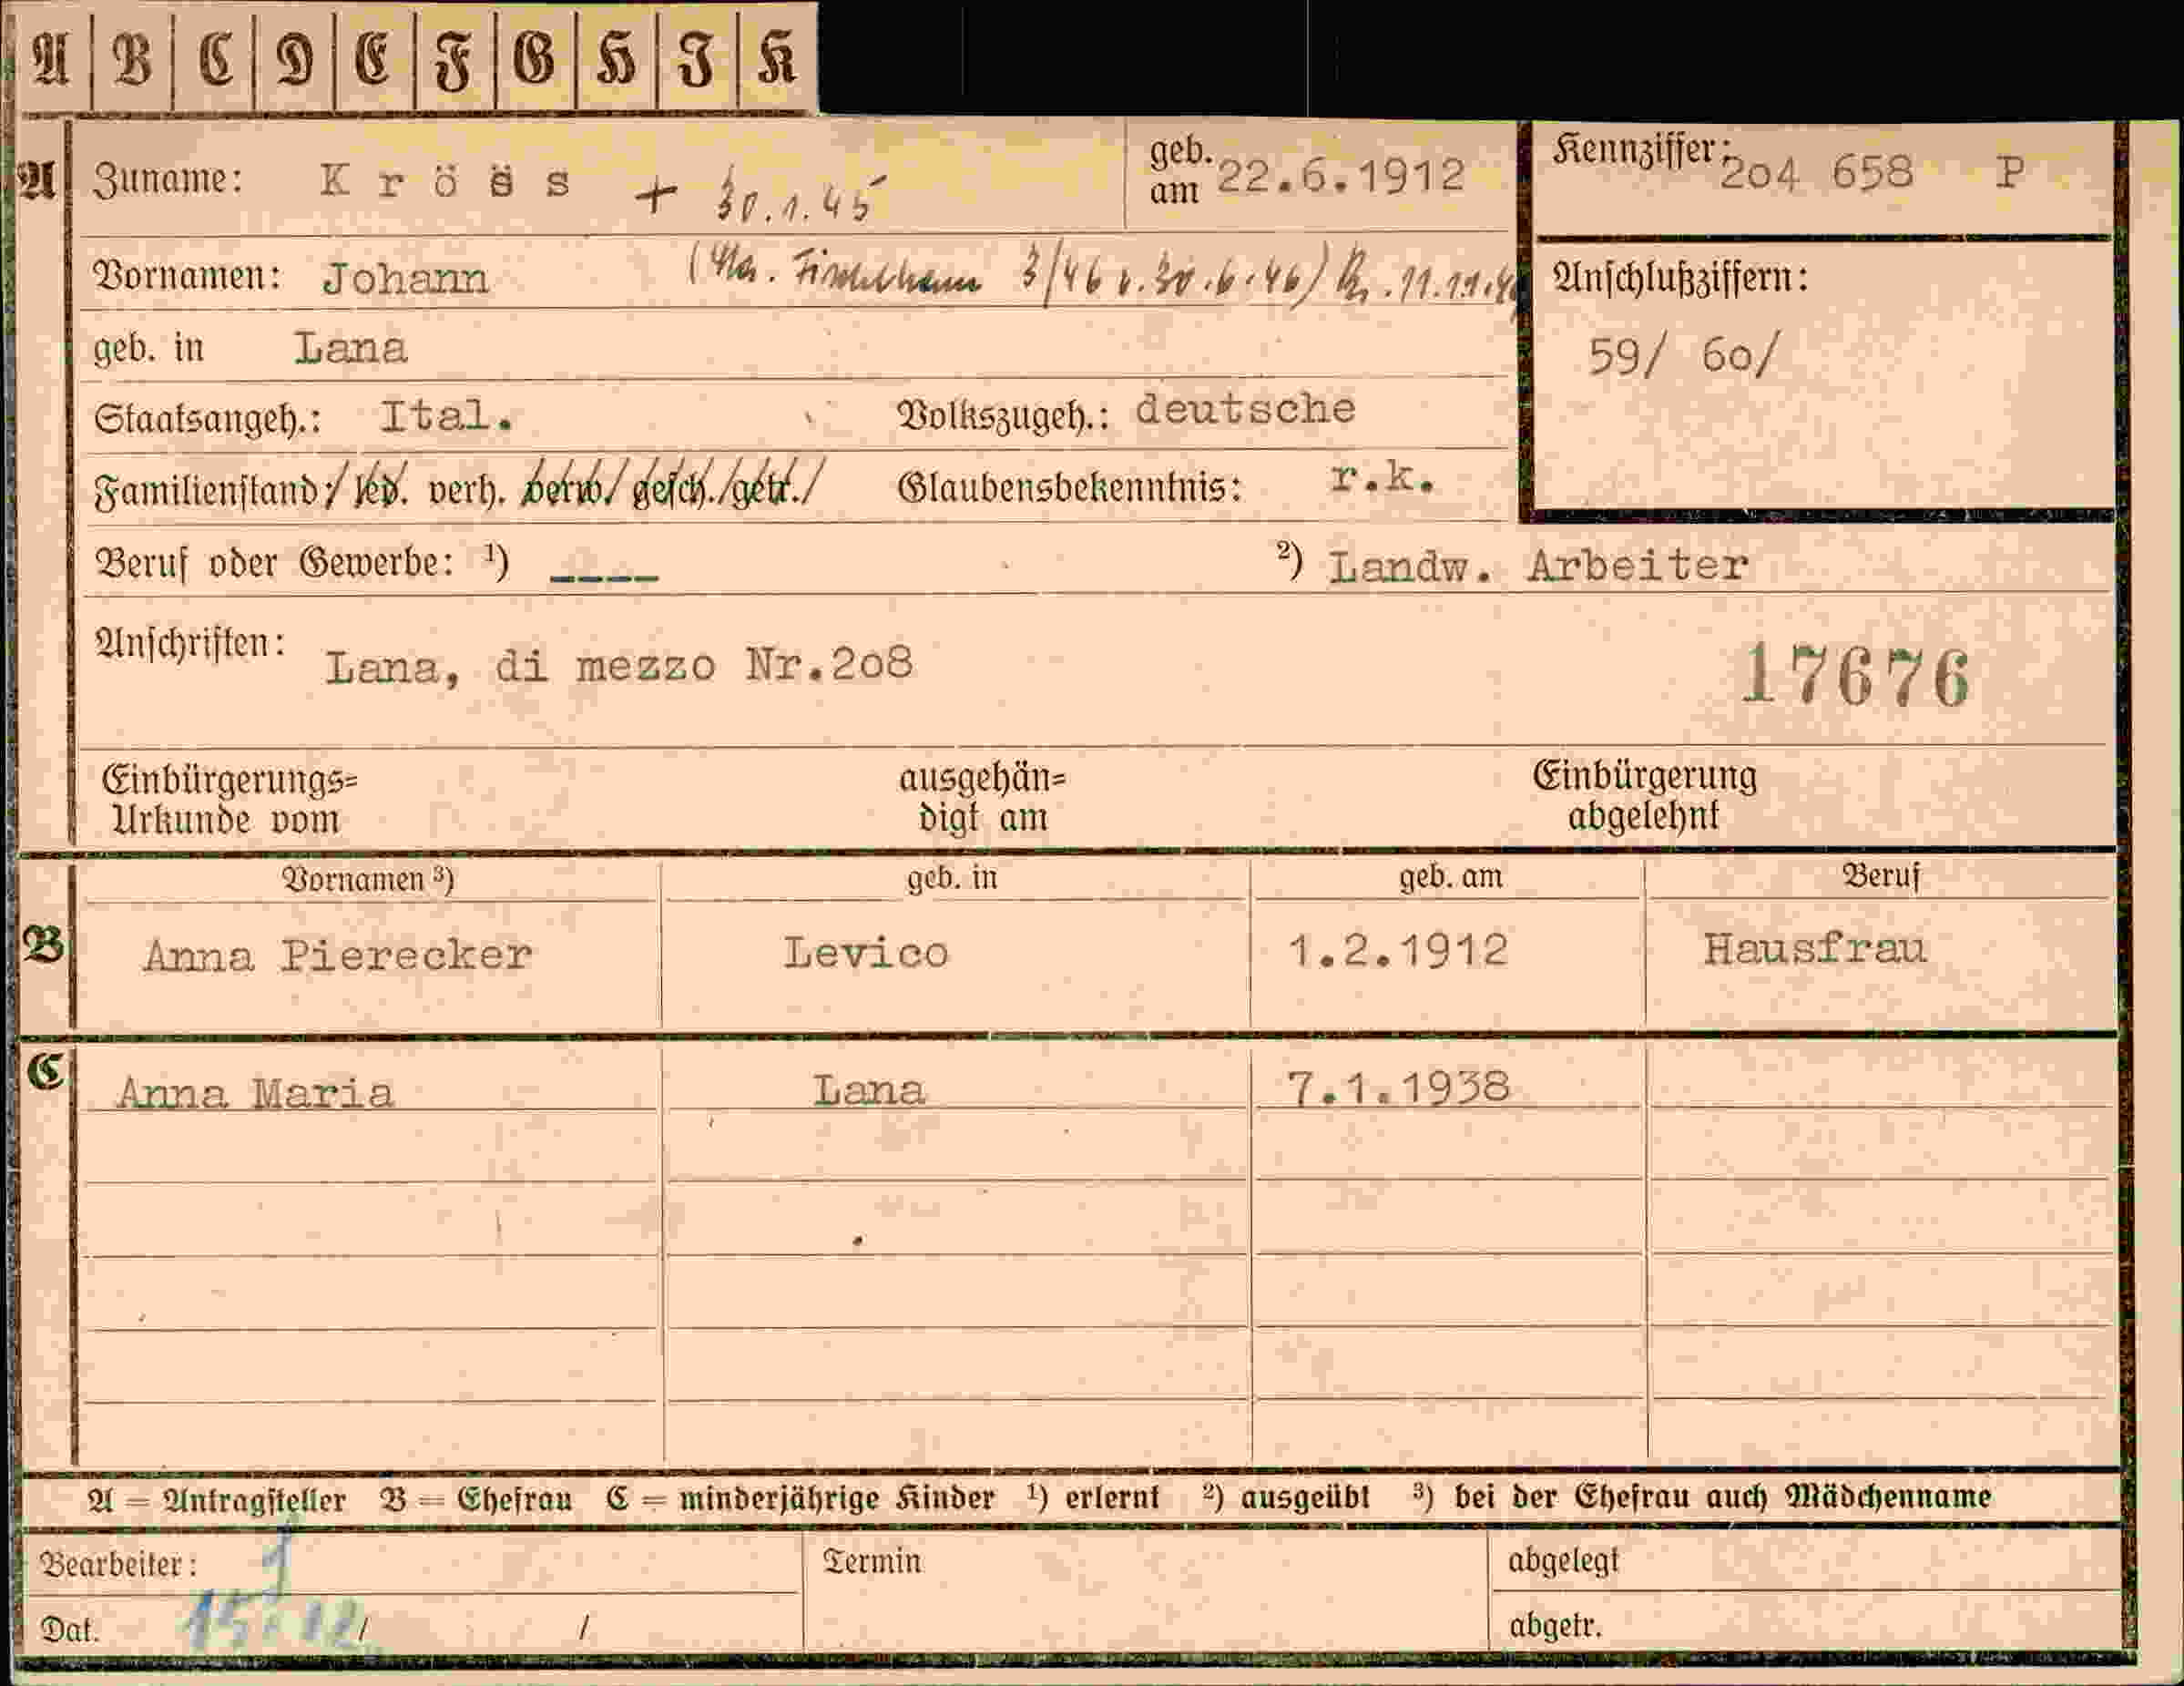 A B C D E F G H I K
A Zuname: K r ö s s + 30.1.45 geb. am 22.6.1912 Kennziffer: 204 658 P
Vornamen: Johann 3/46 v. 30.6.46) Anschlußziffern:
geb. in Lana 59/ 60/
Staatsangeh.: Ital. Volkszugeh.: deutsche
Familienstand:/ led. verh. verw./ gesch./getr./ Glaubensbekenntnis: r.k.
Beruf oder Gewerbe: ¹) ---- ²) Landw. Arbeiter
Anschriften: Lana, di mezzo Nr.208 17676
Einbürgerungs= ausgehän= Einbürgerung
Urkunde vom digt am abgelehnt
Vornamen ³) geb. in geb. am Beruf
B Anna Pierecker Levico 1.2.1912 Hausfrau
C Anna Maria Lana 7.1.1938
A = Antragsteller B = Ehefrau C = minderjährige Kinder ¹) erlernt ²) ausgeübt ³) bei der Ehefrau auch Mädchenname
Bearbeiter: Termin abgelegt
Dat. 15. 12 / / abgetr.